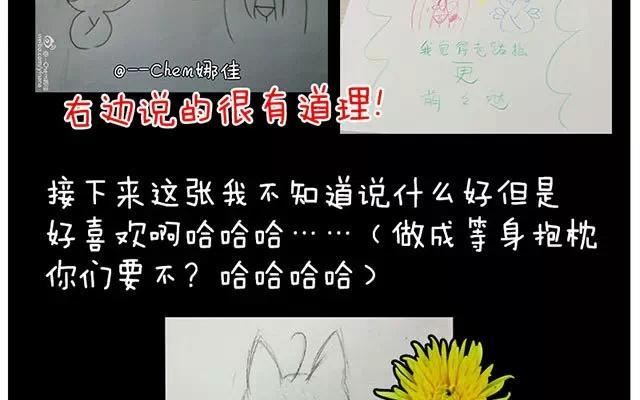 @--Chem娜佳
我觉得
更
萌
右边说的很有道理!
接下来这张我不知道说什么好但是
好喜欢啊哈哈哈……（做成等身抱枕
你们要不？哈哈哈哈）